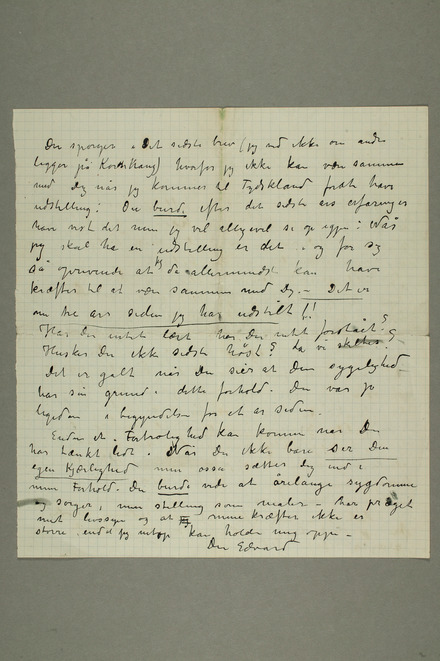 Du spørger i Det sidste brev (jeg ved ikke om andre
ligger på Kork) hvorfor jeg ikke kan være sammen
med dig når jeg kommer til Tydskland for at have
udstilling: Du burde efter det sidste års erfaringer
have vist det men jeg vil alligevel se op igjen: Når
jeg skal ha en udstilling er det i og for sig
så oprivende at jeg da allermindst kan have
kræfter til at være sammen med dig. – Det er
om tre års siden jeg har udstilt!!
Har Du intet lært har Du intet forstået?
Husker Du ikke sidste höst? da vi skiltes?
Det er galt når Du siger at Din sygelighed
har sin grund i dette forhold. Den var jo
ligedan i begyndelsen for et år siden.
Endnu et. Fortrolighed kan komme når Du
har tænkt lidt. Når Du ikke bare ser Din
egen Kjærlighed men også sætter Dig ind i
mine Forhold. Du burde vide at årelange sygdomme
og sorger, min stilling som maler – har præget
mit livssyn og at mine kræfter ikke er
større end jeg kan holde mig oppe –
Din Edvard